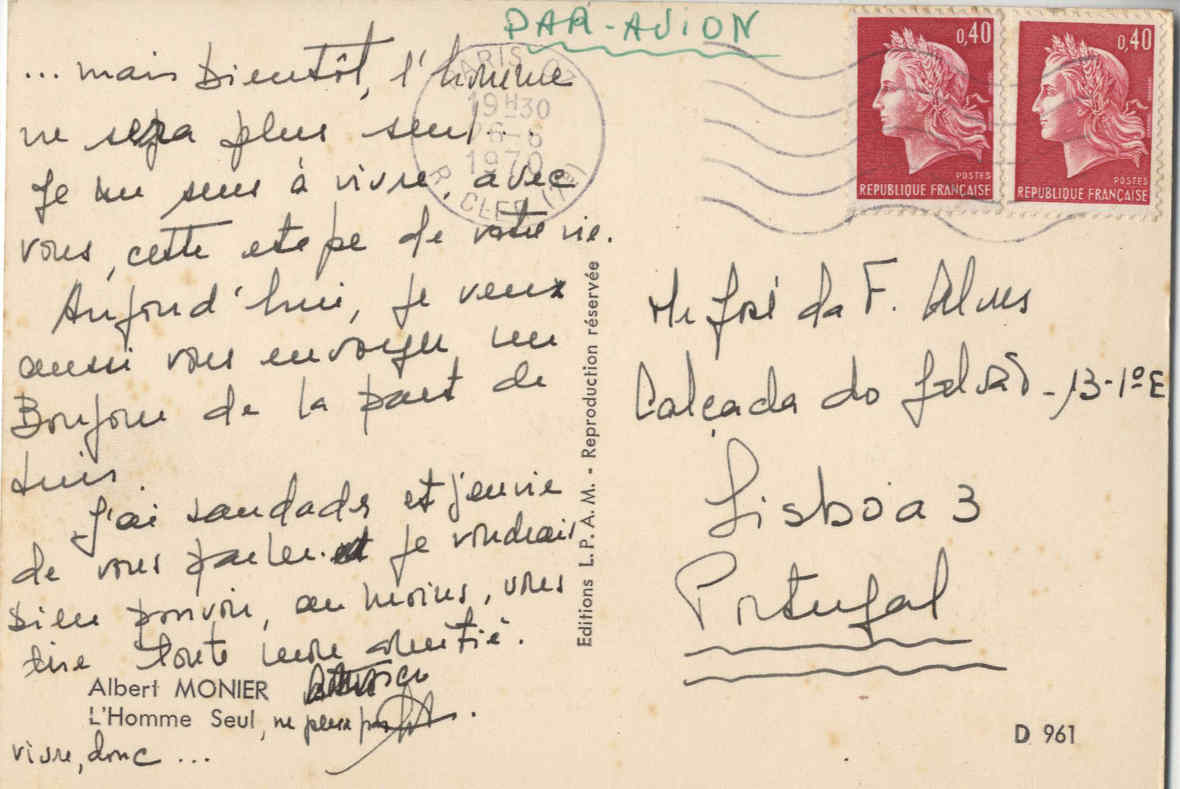 PAR-AVION
... mais bientôt, l'homme
ne sera plus seul...
Je me sens à vivre, avec
vous, cette etape de votre vie.
Aujourd'hui, je veux
aussi vous envoyer un
Bonjour de la part de
J'ai saudades et j'envie
de vous parler. et je voudrais
bien pouvoir, au moins, vous
dire toute mon amitié.
Albert MONIER
L'Homme Seul, ne peux pas
vivre, donc ...
Editions L.P.A.M. - Reproduction réservée
PARIS 07
19H30
6-6
1970
R. CLER (7e)
0,40
POSTES
REPUBLIQUE FRANÇAISE
0,40
POSTES
REPUBLIQUE FRANÇAISE
Mr José da F. Alves
Calçada do Galvão - 13-1ºE
Lisboa 3
Portugal
D 961